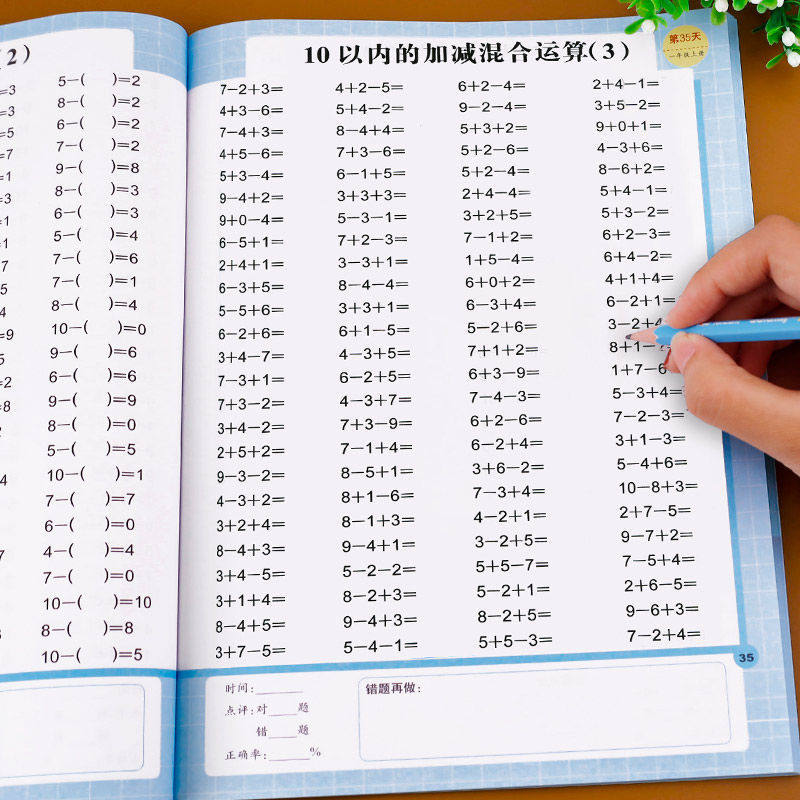 2)
5−( )=2
8−( )=2
6−( )=2
7−( )=2
9−( )=8
8−( )=3
6−( )=3
5−( )=4
7−( )=6
7−( )=1
8−( )=4
10−( )=0
9−( )=6
6−( )=6
9−( )=9
8−( )=0
5−( )=5
10−( )=1
7−( )=7
6−( )=0
4−( )=4
7−( )=0
10−( )=10
8−( )=8
10−( )=5
10以内的加减混合运算(3)
第35天
一年级上册
7−2+3= 4+2−5= 6+2−4= 2+4−1=
4+3−6= 5+4−2= 9−2−4= 3+5−2=
7−4+3= 8−4+4= 5+3+2= 9+0+1=
4+5−6= 7+3−6= 5+2−6= 4−3+6=
5+3−4= 6−1+5= 5+2−4= 8−6+2=
9−4+2= 3+3+3= 2+4−4= 5+4−1=
9+0−4= 5−3−1= 3+2+5= 5+3−2=
6−5+1= 7+2−3= 7−1+2= 6+2−3=
2+4+1= 3−3+1= 1+5−4= 6+4−2=
6−3+5= 8−4−4= 6+0+2= 4+1+4=
5−5+6= 3+3+1= 6−3+4= 6−2+1=
6−2+6= 6+1−5= 5−2+6= 3−2+4
3+4−7= 4−3+5= 7+1+2= 8+1−
7−3+1= 6−2+5= 6+3−9= 1+7−6
7+3−2= 4−3+7= 7−4−3= 5−3+4=
3+4−2= 7+3−9= 6+2−6= 7−2−3=
2+5+2= 7−1+4= 6−2+4= 3+1−3=
9−3−2= 8−5+1= 3+6−2= 5−4+6=
4−3+2= 8+1−6= 7−3+4= 10−8+3=
3+2+4= 8−1+3= 4−2+1= 2+7−5=
8−4+3= 9−4+1= 3−2+5= 9−7+2=
3+4−5= 5−2−2= 5+5−7= 7−5+4=
3+1+4= 8−2+3= 5−2+1= 2+6−5=
8−4+5= 9−4+3= 8−2+5= 9−6+3=
3+7−5= 5−4−1= 5+5−3= 7−2+4=
35
时间:____
点评:对____题
错____题
正确率:____%
错题再做: